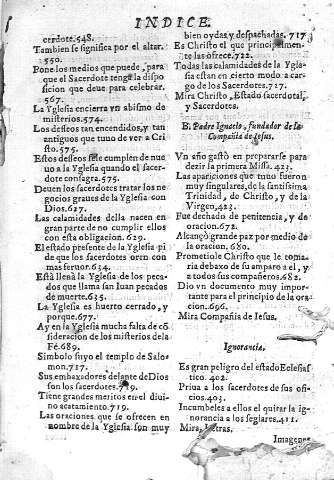 INDICE.
cerdote.548.
Tambien se significa por el altar.
550.
Pone los medios que puede, para
que el Sacerdote tenga la dispo
sicion que deue para celebrar.
567.
La Yglesia encierra vn abismo de
misterios.574.
Los desseos tan encendidos, y tan
antiguos que tuuo de ver a Cri
sto.575.
Estos desseos se le cumplen de nue
uo a la Yglesia quando el sacer-
dote consagra.575.
Deuen los sacerdotes tratar los ne
gocios graues de la Yglesia con
Dios.627.
Las calamidades della nacen en
gran parte de no cumplir ellos
con esta obligacion.629.
El estado presente de la Yglesia pi
de que los sacerdotes oren con
mas feruor.634.
Està llena la Yglesia de los peca-
dos que llama san Iuan pecados
de muerte.635.
La Yglesia es huerto cerrado, y
porque.677.
Ay en la Yglesia mucha falta de cõ
sideracion de los misterios de la
Fè.689.
Simbolo suyo el templo de Salo-
mon.717.
Sus embaxadores delante de Dios
son los sacerdotes.719.
Tiene grandes meritos en el diui-
no acatamiento.719.
Las oraciones que se ofrecen en
nombre de la Yglesia son muy
bien oydas, y despachadas.717
Es Christo el que principalmen-
te las ofrece.722.
Todas las calamidades de la Ygle-
sia estan en cierto modo a car-
go de los Sacerdotes.727.
Mira Christo, Estado sacerdotal,
y Sacerdotes.
B. Padre Ignacio, fundador de la
Compañia de Iesus.
Vn año gastò en prepararse para
dezir la primera Missa.423.
Las apariciones que tuuo fueron
muy singulares, de la santissima
Trinidad, de Christo, y de la
Virgen.423.
Fue dechado de penitencia, y de
oracion.672.
Alcançò grande paz por medio de
la oracion.680.
Prometiole Christo que le toma-
ria debaxo de su amparo a el, y
a todos sus compañeros.682.
Dio vn documento muy impor-
tante para el principio de la ora
cion.696.
Mira Compañia de Iesus.
Ignorancia.
Es gran peligro del estado Eclesias
tico. 402.
Priua a los sacerdotes de sus ofi-
cios.403.
Incumbeles a ellos el quitar la ig-
norancia a los seglares.411.
Mira, Letras.
Imagenes